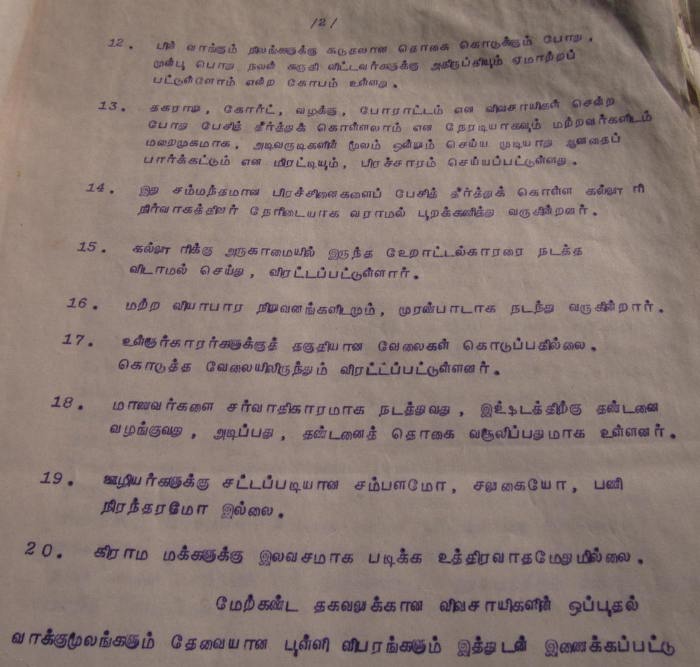 /2/
12. பின் வாங்கும் நிலங்களுக்கு கூடுதலான தொகை கொடுக்கும் போது,
முன்பு பொது நலன் கருதி விட்டவர்களுக்கு அதிருப்தியும் ஏமாற்றப்
பட்டுள்ளோம் என்ற கோபம் உள்ளது.
13. தகராறு, கோர்ட், வழக்கு, போராட்டம் என விவசாயிகள் சென்ற
போது பேசித் தீர்த்துக் கொள்ளலாம் என நேரடியாகவும் மற்றவர்களிடம்
மறைமுகமாக, அடிவருடிகளின் மூலம் ஒன்றும் செய்ய முடியாது ஆனதைப்
பார்க்கட்டும் என மிரட்டியும், பிரச்சாரம் செய்யப்பட்டுள்ளது.
14. இது சம்மந்தமான பிரச்சினைகளைப் பேசித் தீர்த்துக் கொள்ள கல்லூரி
நிர்வாகத்தினர் நேரிடையாக வராமல் புறக்கணித்து வருகின்றனர்.
15. கல்லூரிக்கு அருகாமையில் இருந்த ஹோட்டல்காரரை நடத்த
விடாமல் செய்து, விரட்டப்பட்டுள்ளார்.
16. மற்ற வியாபார நிறுவனங்களிடமும், முரண்பாடாக நடந்து வருகின்றார்.
17. உள்ளூர்காரர்களுக்குத் தகுதியான வேலைகள் கொடுப்பதில்லை.
கொடுத்த வேலையிலிருந்தும் விரட்டப்பட்டுள்ளனர்.
18. மாணவர்களை சர்வாதிகாரமாக நடத்துவது, இஷ்டத்திற்கு தண்டனை
வழங்குவது, அடிப்பது, தண்டனைத் தொகை வசூலிப்பதுமாக உள்ளனர்.
19. ஊழியர்களுக்கு சட்டப்படியான சம்பளமோ, சலுகையோ, பணி
நிரந்தரமோ இல்லை.
20. கிராம மக்களுக்கு இலவசமாக படிக்க உத்திரவாதமேதுமில்லை.
மேற்கண்ட தகவலுக்கான விவசாயிகளின் ஒப்புதல்
வாக்குமூலங்களும் தேவையான புள்ளி விபரங்களும் இத்துடன் இணைக்கப்பட்டு